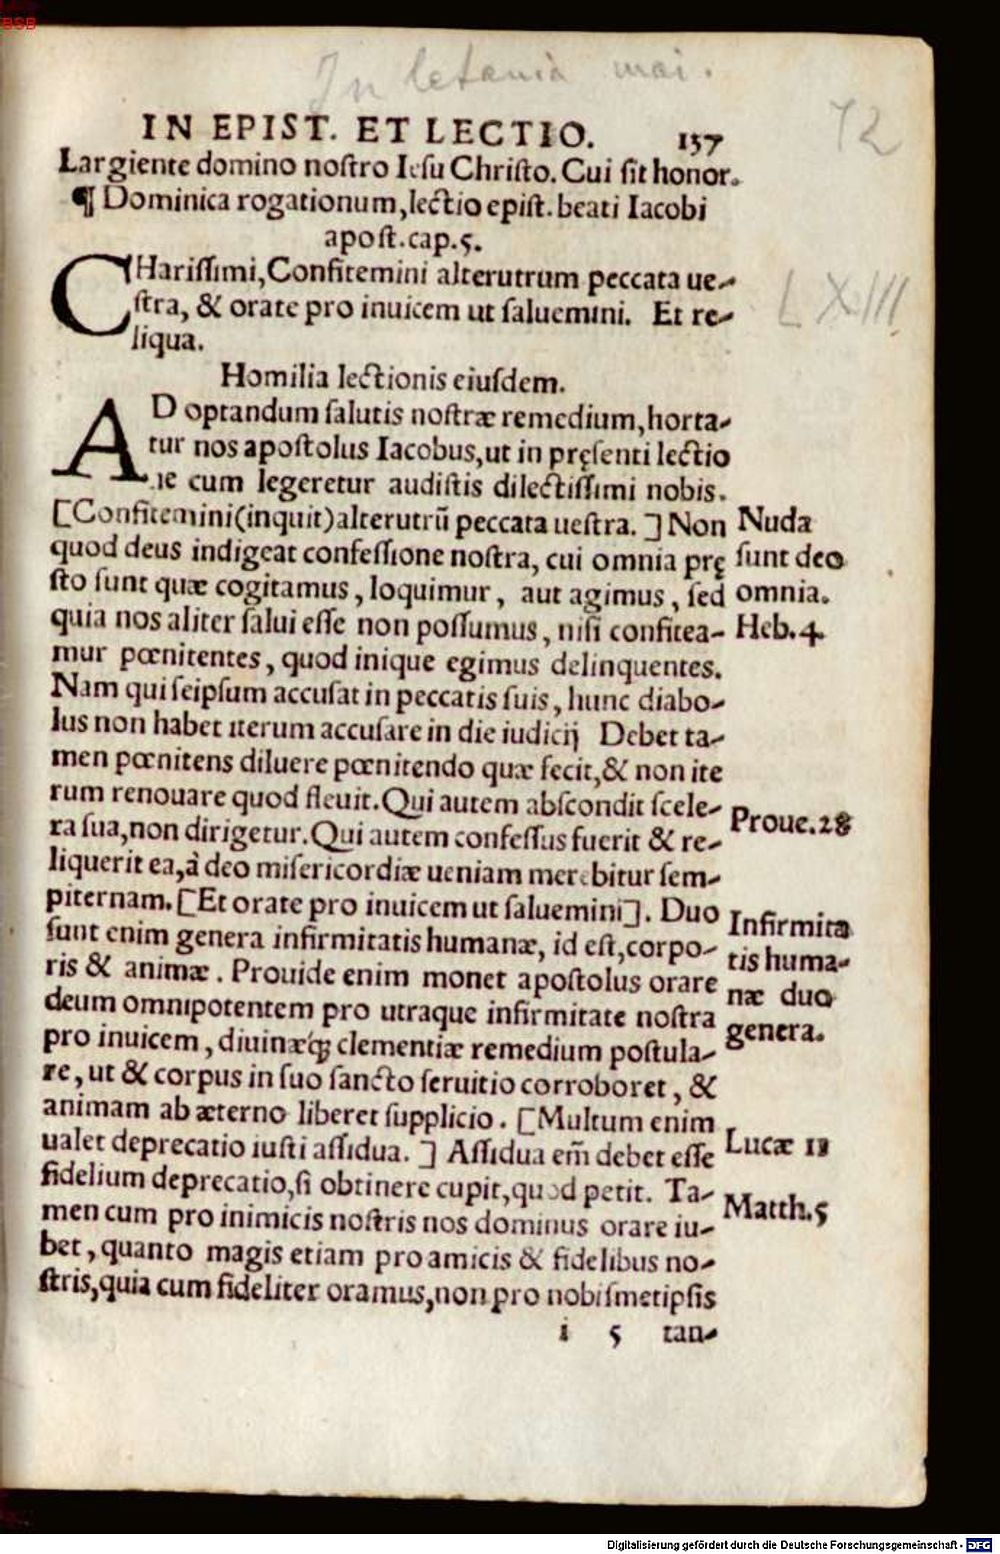 BSB
In letania mai.
72
IN EPIST. ET LECTIO. 157
Largiente domino nostro Iesu Christo. Cui sit honor.
¶ Dominica rogationum, lectio epist. beati Iacobi
apost. cap. 5.
CHarissimi, Confitemini alterutrum peccata ue-
stra, & orate pro inuicem ut saluemini. Et re-
liqua.
LXIII
Homilia lectionis eiusdem.
AD optandum salutis nostræ remedium, horta-
tur nos apostolus Iacobus, ut in pręsenti lectio
ne cum legeretur audistis dilectissimi nobis.
[Confitemini (inquit) alterutrū peccata uestra.] Non
quod deus indigeat confessione nostra, cui omnia prę
sto sunt quæ cogitamus, loquimur, aut agimus, sed
quia nos aliter salui esse non possumus, nisi confitea-
mur pœnitentes, quod inique egimus delinquentes.
Nam qui seipsum accusat in peccatis suis, hunc diabo-
lus non habet iterum accusare in die iudicij Debet ta-
men pœnitens diluere pœnitendo quæ fecit, & non ite
rum renouare quod fleuit. Qui autem abscondit scele-
ra sua, non dirigetur. Qui autem confessus fuerit & re-
liquerit ea, à deo misericordiæ ueniam merebitur sem-
piternam. [Et orate pro inuicem ut saluemini]. Duo
sunt enim genera infirmitatis humanæ, id est, corpo-
ris & animæ. Prouide enim monet apostolus orare
deum omnipotentem pro utraque infirmitate nostra
pro inuicem, diuinæq́; clementiæ remedium postula-
re, ut & corpus in suo sancto seruitio corroboret, &
animam ab æterno liberet supplicio. [Multum enim
ualet deprecatio iusti assidua.] Assidua em̄ debet esse
fidelium deprecatio, si obtinere cupit, quod petit. Ta-
men cum pro inimicis nostris nos dominus orare iu-
bet, quanto magis etiam pro amicis & fidelibus no-
stris, quia cum fideliter oramus, non pro nobismetipsis
i 5 tan-
Nuda
sunt deo
omnia.
Heb. 4.
Proue. 28
Infirmita
tis huma-
næ duo
genera.
Lucæ 11
Matth. 5
Digitalisierung gefördert durch die Deutsche Forschungsgemeinschaft - DFG